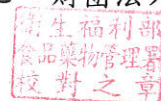 財團法
衛生福利部
食品藥物管理署
校對之章